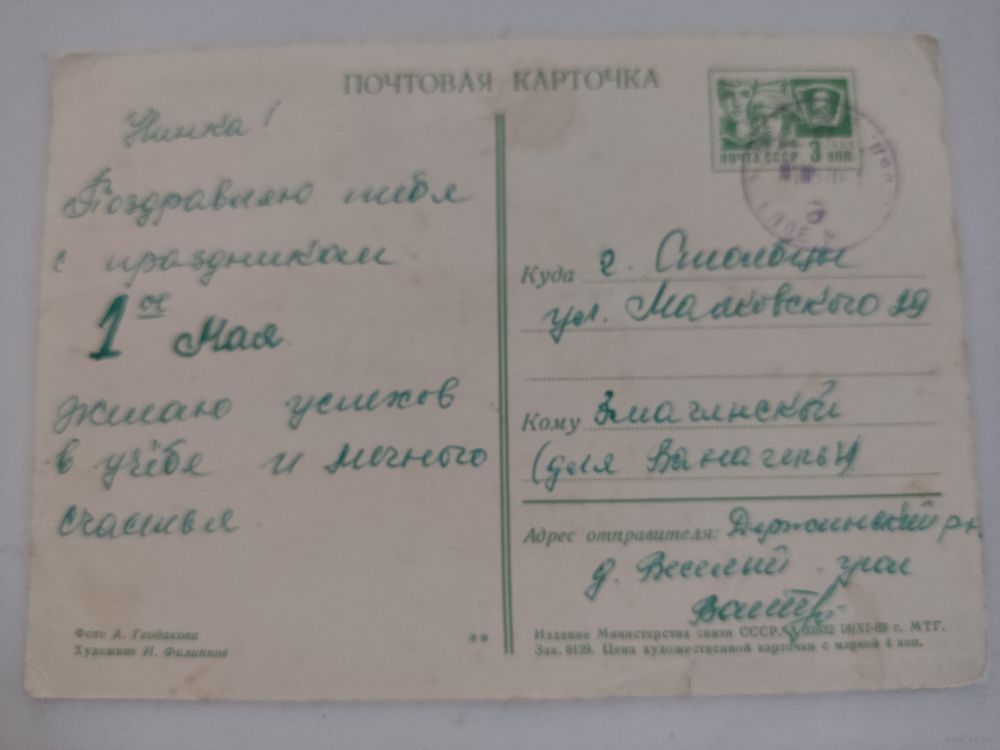 ПОЧТОВАЯ КАРТОЧКА
Нинка!
Поздравляю тебя
с праздником
1ое Мая
желаю успехов
в учёбе и личного
счастья
ПОЧТА СССР 3 КОП
Куда г. Столбцы
ул. Маяковского 29
Кому
(для
Адрес отправителя: Держинский р-н
д. Веселый угол
Фото А. Геодакова
Художник Н. Филиппов
**
Издание Министерства связи СССР. 18/XI-69 г. МТГ.
Зак. 8129. Цена художественной карточки с маркой 4 коп.